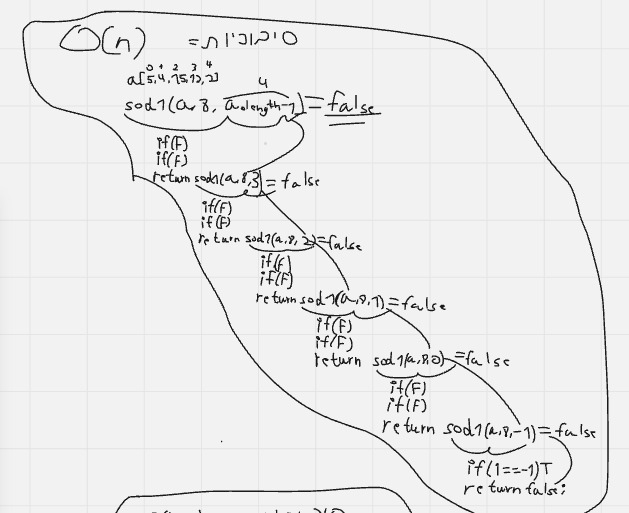 O(n) = סיבוכיות
0 1 2 3 4
a[5,4,15,12,2]
4
sod1(a,8, a.length-1) = false
if(F)
if(F)
return sod1(a,8,3) = false
if(F)
if(F)
return sod1(a,8,2) = false
if(F)
if(F)
return sod1(a,8,1) = false
if(F)
if(F)
return sod1(a,8,0) = false
if(F)
if(F)
return sod1(a,8,-1) = false
if(1==-1)T
return false;